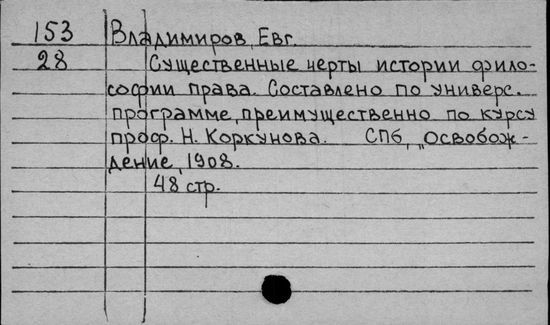 153 Владимиров, Евг.
28 Существенные черты истории фило-
софии права. Составлено по универс.
программе, преимущественно по курсу
проф. Н. Коркунова. СПб, „Освобож-
дение, 1908.
48 стр.